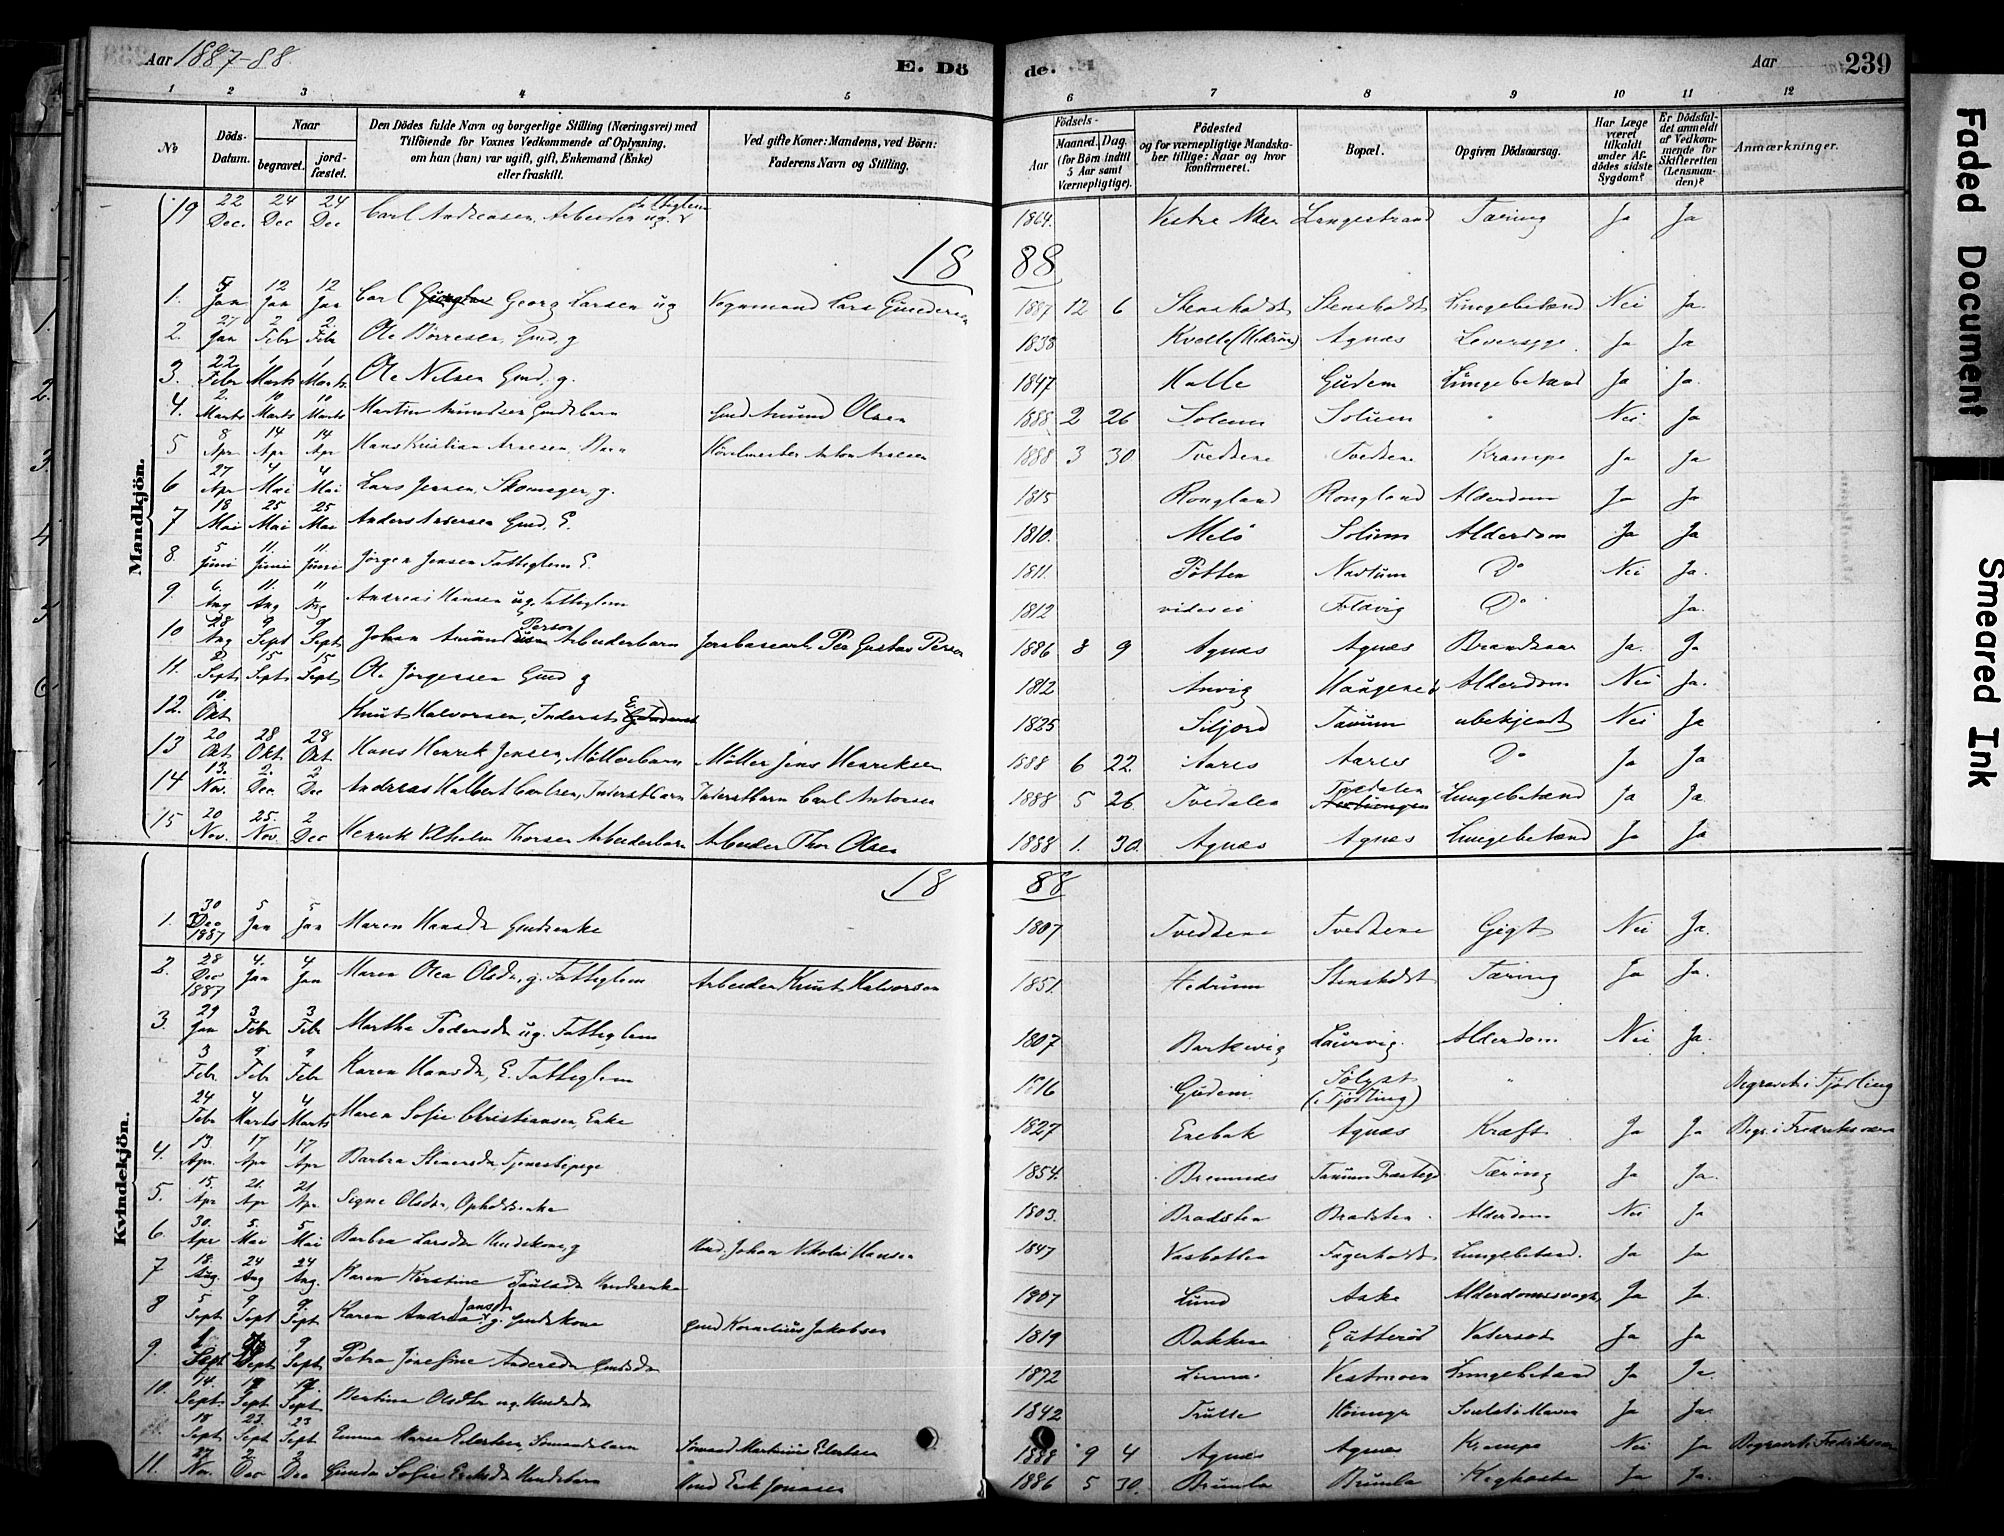 Aar 1887-88.
E. Dö de.
Aar 239
1 2 3 4 5 6 7 8 9 10 11 12
No
Döds-Datum.
Naar begravet. jordfæstet.
Den Dödes fulde Navn og borgerlige Stilling (Næringsvei) med Tilföiende for Voxnes Vedkommende af Oplysning, om han (hun) var ugift, gift, Enkemand (Enke) eller fraskilt.
Ved gifte Koner: Mandens, ved Börn: Faderens Navn og Stilling.
Födsels-
Aar Maaned. Dag. (for Börn indtil 5 Aar samt Værnepligtige).
Födested og for værnepligtige Mandskaber tillige: Naar og hvor konfirmeret.
Bopæl.
Opgiven Dödsaarsag.
Har Læge været tilkaldt under Afdödes sidste Sygdom?
Er Dödsfaldet anmeldt af Vedkommende for Skifteretten (Lensmanden)?
Anmærkninger.
Mandkjön.
19 22 Dec. 24 Dec 24 Dec Carl Andreasen, Arbeider ug. Fattiglem 1864. Langestrand Tæring Ja Ja
18 88
1. Jan 12 Jan 12 Jan Carl Georg Larsen ug Vognmand Lars Gundersen 1887 12 6 Stensholdt Stensholdt Lungebetænd Nei Ja.
2. 27 Jan 2 Febr 2. Febr Ole Börresen, Gmd, g 1838 Kvelle (Hedrum) Agnæs Leversyge Ja Ja
3. 22 Febr 1 Marts 1 Marts. Ole Nilsen Gmd, g. 1847 Halle Gudem Lungebetænd Ja Ja.
4. 2. Marts 10 Marts 10 Marts Martin Amundsen Gmdsbarn Gmd Amund Olsen 1888 2 26 Solum Solum " Nei Ja
5 8 Apr 14 Apr 14 Apr Hans Kristian Arnesen, Barn Anton Arnesen 1888 3 30 Tvedtene Tvedtene Krampe Ja Ja
6 27 Apr 4 Mai 4 Mai Lars Jensen, Skomager, g. 1815 Rongland Rongland Alderdom Ja Ja
7 18 Mai 25 Mai 25 Mai Anders Andersen Gmd, E. 1810. Melö Solum Alderdom Ja Ja
8. 5 Juni 11. Juni 11. Juni Jörgen Jensen Fattiglem E. 1811. Pötten Navtum Do Nei Ja.
9 6. Aug 11. Aug 11 Aug Andreas Hansen ug. Fattiglem 1812 videsei Do Ja.
10 28 Aug 9 Sept 9 Sept. Johan Amund Person Arbeiderbarn Per Gustav Person 1886 8 9 Agnæs Agnæs Brandsaar Ja. Ja
11. Sept 15 Sept 15 Sept Ole Jörgensen Gmd g 1812 Anvig Haugene Alderdom Nei Ja.
12. 10. Okt Knut Halvorsen, Inderst, E 1825 Siljord Tanum ubekjent Nei Ja
13 20 Okt 28 Okt 28 Okt Hans Henrik Jensen, Möllerbarn Möller Jens Henriksen 1888 6 22. Aares Aares Do Ja Ja
14 13. Nov. 2. Dec. 2 Dec Andreas Halbert Carlsen, Inderstbarn Inderstbarn Carl Antonsen 1888 5 26 Tvedalen Tvedalen Lungebetænd Ja Ja.
15 20 Nov. 25. Nov. 2 Dec Henrik Vilhelm Thorsen Arbeiderbarn Arbeider Thor Olsen 1888 1. 30. Agnæs Agnæs Lungebetænd Ja Ja
Kvindekjön.
18 88
1. 30 Dec 1887 5 Jan 5 Jan Maren Hansdr Gmdsenke 1807 Tvedtene Tvedtene Gigt Nei Ja.
2. 28 Dec 1887 4. Jan 4 Jan Maren Olea Olsdr, g. Fattiglem Arbeider Knut Halvorsen 1851. Hedrum Stensholdt Tæring Ja Ja.
3. 29 Jan 3 Febr 3 Febr Martha Pedersdr ug. Fattiglem 1807 Barkevig Laurvig. Alderdom Nei Ja.
3 Febr. 9 Febr 9 Febr Karen Hansdr, E. Fattiglem 1816 Gudem Sölyst (i Tjödling) " Begravet i Tjödling
24 Febr 4 Marts 4 Marts Maren Sofie Christiansen, Enke 1827 Enebak Agnæs Kræft Ja Ja Begr. i Fredriksværn
4. 13 Apr. 17 Apr 17 Apr Barbra Stinersdr Tjenestepige 1854. Bremnæs Tanum Præstegd Tæring Ja Ja.
5. 15. Apr 21. Apr 21 Apr. Signe Olsdr, Opholdsenke 1803. Bradsten Bradsten. Alderdom Nei Ja
6 30. Apr 5. Mai 5 Mai Barbra Larsdr Hmdskone, g Hmd. Johan Nikolai Hansen 1847 Vasbotten Fagerholdt Lungebetænd. Ja Ja
7 18. Aug. 24 Aug 24 Aug. Karen Kirstine Paulsdr Hmdsenke 1807 Lund Aske Alderdomssvaghd Ja Ja.
8 5 Sept 9 Sept 9. Sept Karen Andrea Jansdr g. Gmdskone Gmd Kornelius Jakobsen 1819 Bakken Götteröd Vatersot Ja Ja
9. 1 Sept Sept 9 Sept Petra Josefine Andersdr Gmdsdr 1872 Vestmoen Lungebetænd Ja Ja.
10. 14. Sept. Sept Sept Bertine Olsdtr ug. Hmdsdr 1842 Trulse Ja Ja.
18 Sept 23. Sept 23 Sept Emma Marie Edertsen, Sömandsbarn Sömand Martinius Edertsen 1888 9 4 Agnæs Agnæs Krampe Nei Ja Begravet i Fredriksværn
11. 27 Nov. 2 Dec 2 Dec Gunda Sofie Eriksdr Hmdsbarn Hmd Erik Jonassen 1886 5 30. Brumla Brumla Kighoste Ja Ja.
Faded Document
Smeared Ink